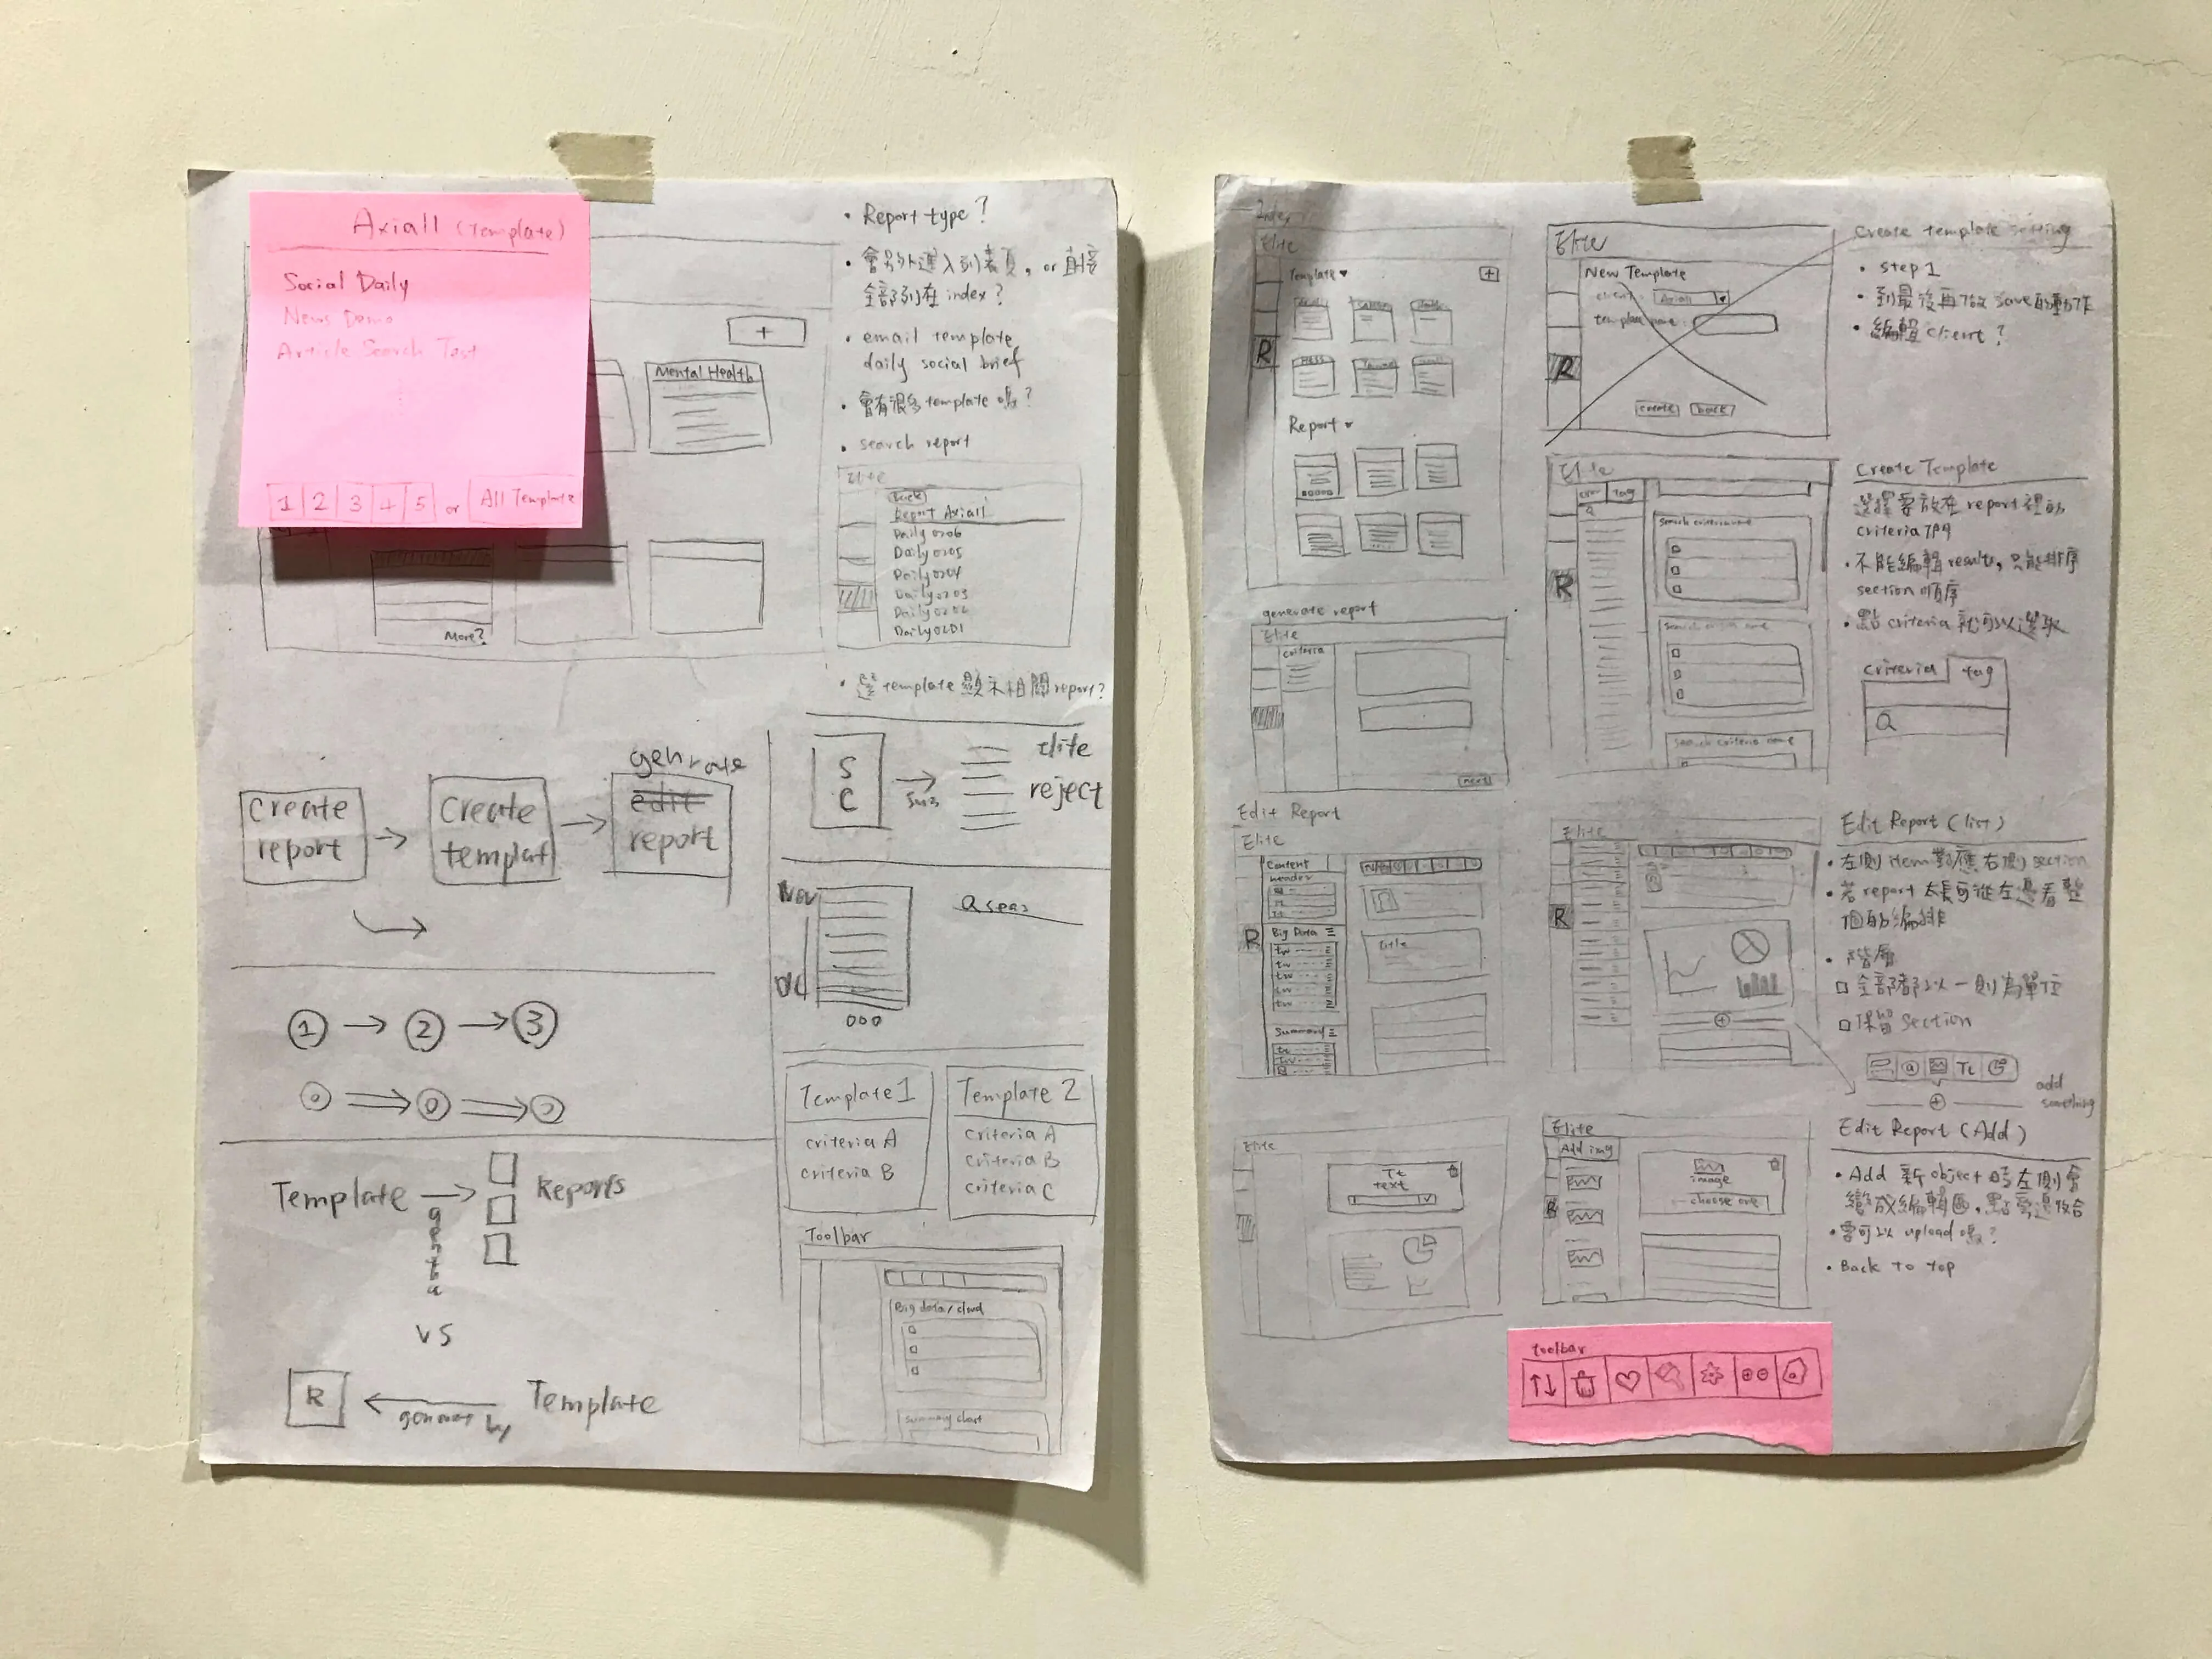 Axiall (Template)
Social Daily
News Demo
Article Search Test
1 2 3 4 5 or All Template
+
Mental Health
More?
• Report type?
• 會另外進入列表頁, or 直接
全部列在 index?
• email template
daily social brief
• 會有很多 template 嗎?
• search report
Elite
Back
Report Axiall
Daily 0206
Daily 0205
Daily 0204
Daily 0203
Daily 0202
Daily 0201
• 選 template 顯示相關 report?
create
report
create
templat
genrate
edit
report
S
C
Elite
reject
Nov
000
1 → 2 → 3
Template 1
criteria A
criteria B
Template 2
criteria A
criteria B
criteria C
Template
Reports
vs
R
Template
Toolbar
Big data/cloud
Summary chart
Index
Elite
Template
+
R
Report
Elite
New Template
client: Axiall
template name:
R
create back
create template setting
• step 1
• 到最後再做 save 的動作
• 編輯 client?
generate report
Elite
criteria
next
Elite
tag
R
search criteria name
search criteria name
search criteria name
Create Template
選擇要放在 report 裡的
criteria 們
• 不能編輯 results, 只能排序
section 順序
• 點 criteria 就可以選取
criteria tag
Edit Report
Elite
Content
header
R
Big Data
tw
tw
tw
tw
tw
Summary
title
Elite
R
Edit Report (list)
• 左側 item 對應右側 section
• 若 report 太長可從左邊看整
個的編排
• 階層
全部都以一則為單位
保留 section
Tt
add
something
Elite
Tt
text
Elite
Add img
R
image
choose one
Edit Report (Add)
• Add 新 object 時左側會
變成編輯區, 點旁邊收合
• 需可以 upload 嗎?
• Back to top
toolbar